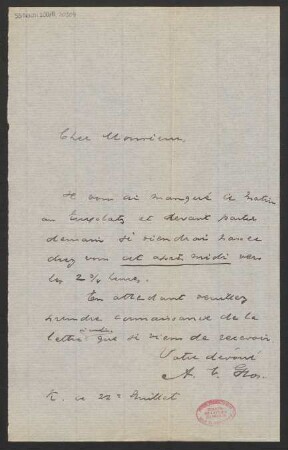 Cher Monsieur,
Je vous ai manqué ce matin
au et devant partir
demain je viendrai
chez vous cet après midi vers
les 2 ½ heures.
En attendant veuillez
prendre connaissance de la
lettre que je viens de recevoir
Votre dévoué
A. E.
22 Juillet